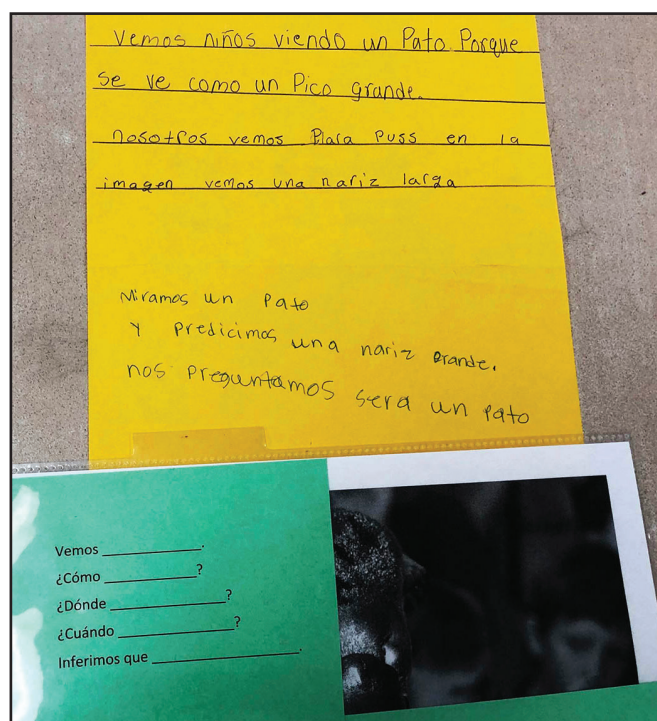 Vemos niños viendo un Pato Porque
se ve como un Pico grande.
nosotros vemos Plata Puss en la
imagen vemos una nariz larga
Miramos un Pato
y predicimos una nariz grande.
nos preguntamos sera un pato
Vemos ____________.
¿Cómo ____________?
¿Dónde ____________?
¿Cuándo ____________?
Inferimos que ____________.